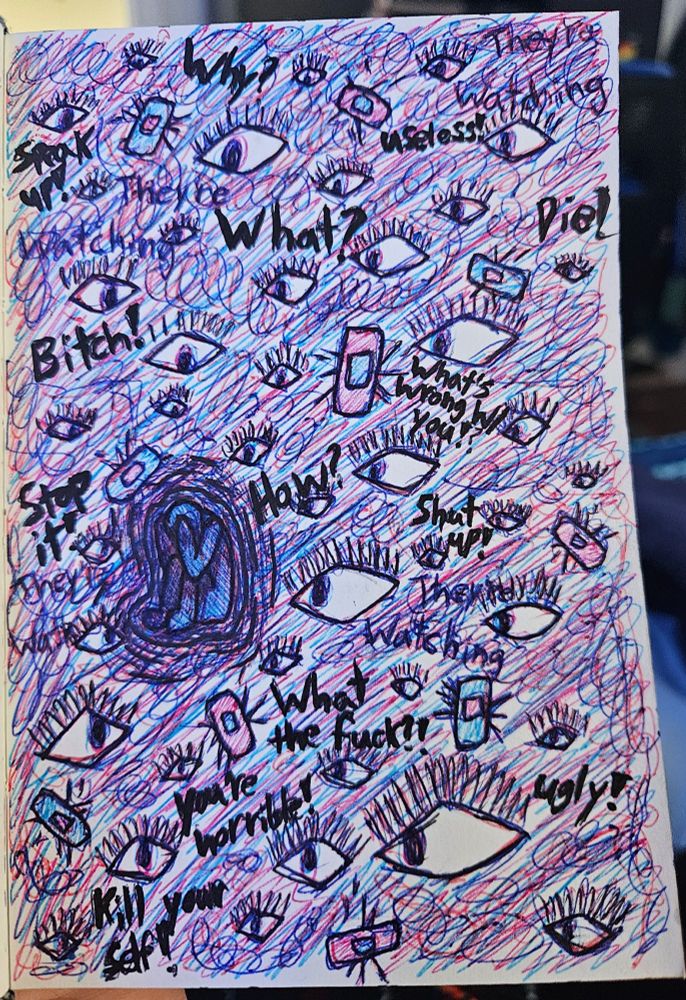 Why?
They're
watching
Speak
up!
useless!
They're
watching
What?
Die!
Bitch!
What's
wrong w/
you!!
How?
Stop
it!
Shut
up!
They're
wat
They're
watching
What
the fuck?!
you're
horrible!
ugly!
Kill your
self!